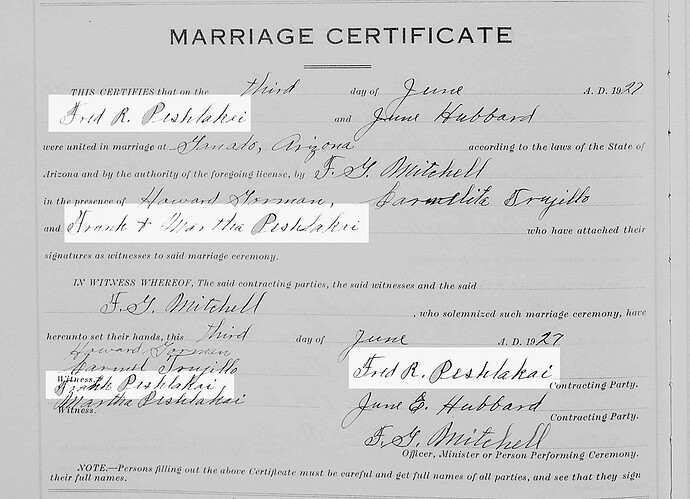 MARRIAGE CERTIFICATE
THIS CERTIFIES that on the third day of June A. D. 1927
Fred R. Peshlakai and June Hubbard
were united in marriage at Ganato, Arizona according to the laws of the State of
Arizona and by the authority of the foregoing license, by F. G. Mitchell
in the presence of Howard Gorman, Carmelita Trujillo
and Frank + Martha Peshlakai who have attached their
signatures as witnesses to said marriage ceremony.
IN WITNESS WHEREOF, The said contracting parties, the said witnesses and the said
F. G. Mitchell , who solemnized such marriage ceremony, have
hereunto set their hands, this third day of June A. D. 1927
Howard Gorman
Carmel Trujillo Fred R. Peshlakai
Witness. Frank Peshlakai Contracting Party.
Martha Peshlakai June E. Hubbard
Witness. Contracting Party.
F. G. Mitchell
Officer, Minister or Person Performing Ceremony.
NOTE.—Persons filling out the above Certificate must be careful and get full names of all parties, and see that they sign
their full names.